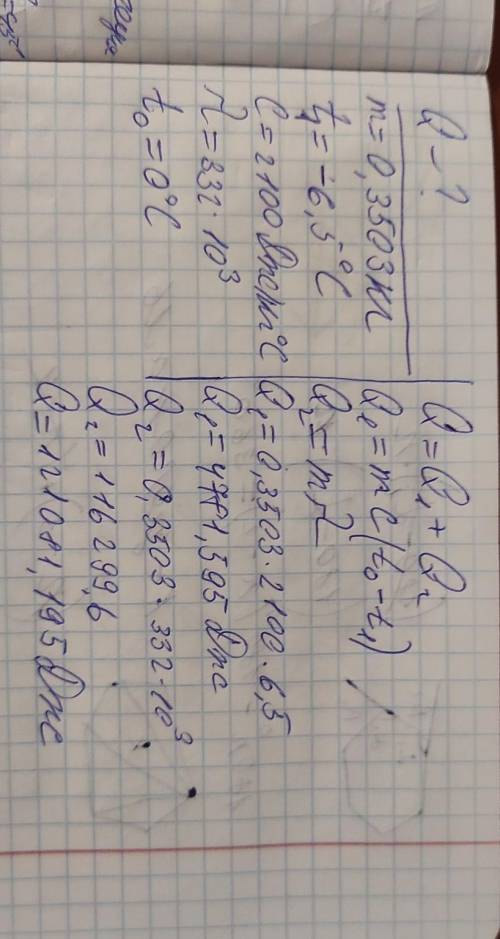 Q - ?
m = 0,3503 кг
t₁ = -6,5 °C
C = 2100 Дж/кг°C
λ = 332 · 10³
t₀ = 0°C
Q = Q₁ + Q₂
Q₁ = m c (t₀ - t₁)
Q₂ = m λ
Q₁ = 0,3503 · 2100 · 6,5
Q₁ = 4781,595 Дж
Q₂ = 0,3503 · 332 · 10³
Q₂ = 116 299,6
Q = 121081,195 Дж